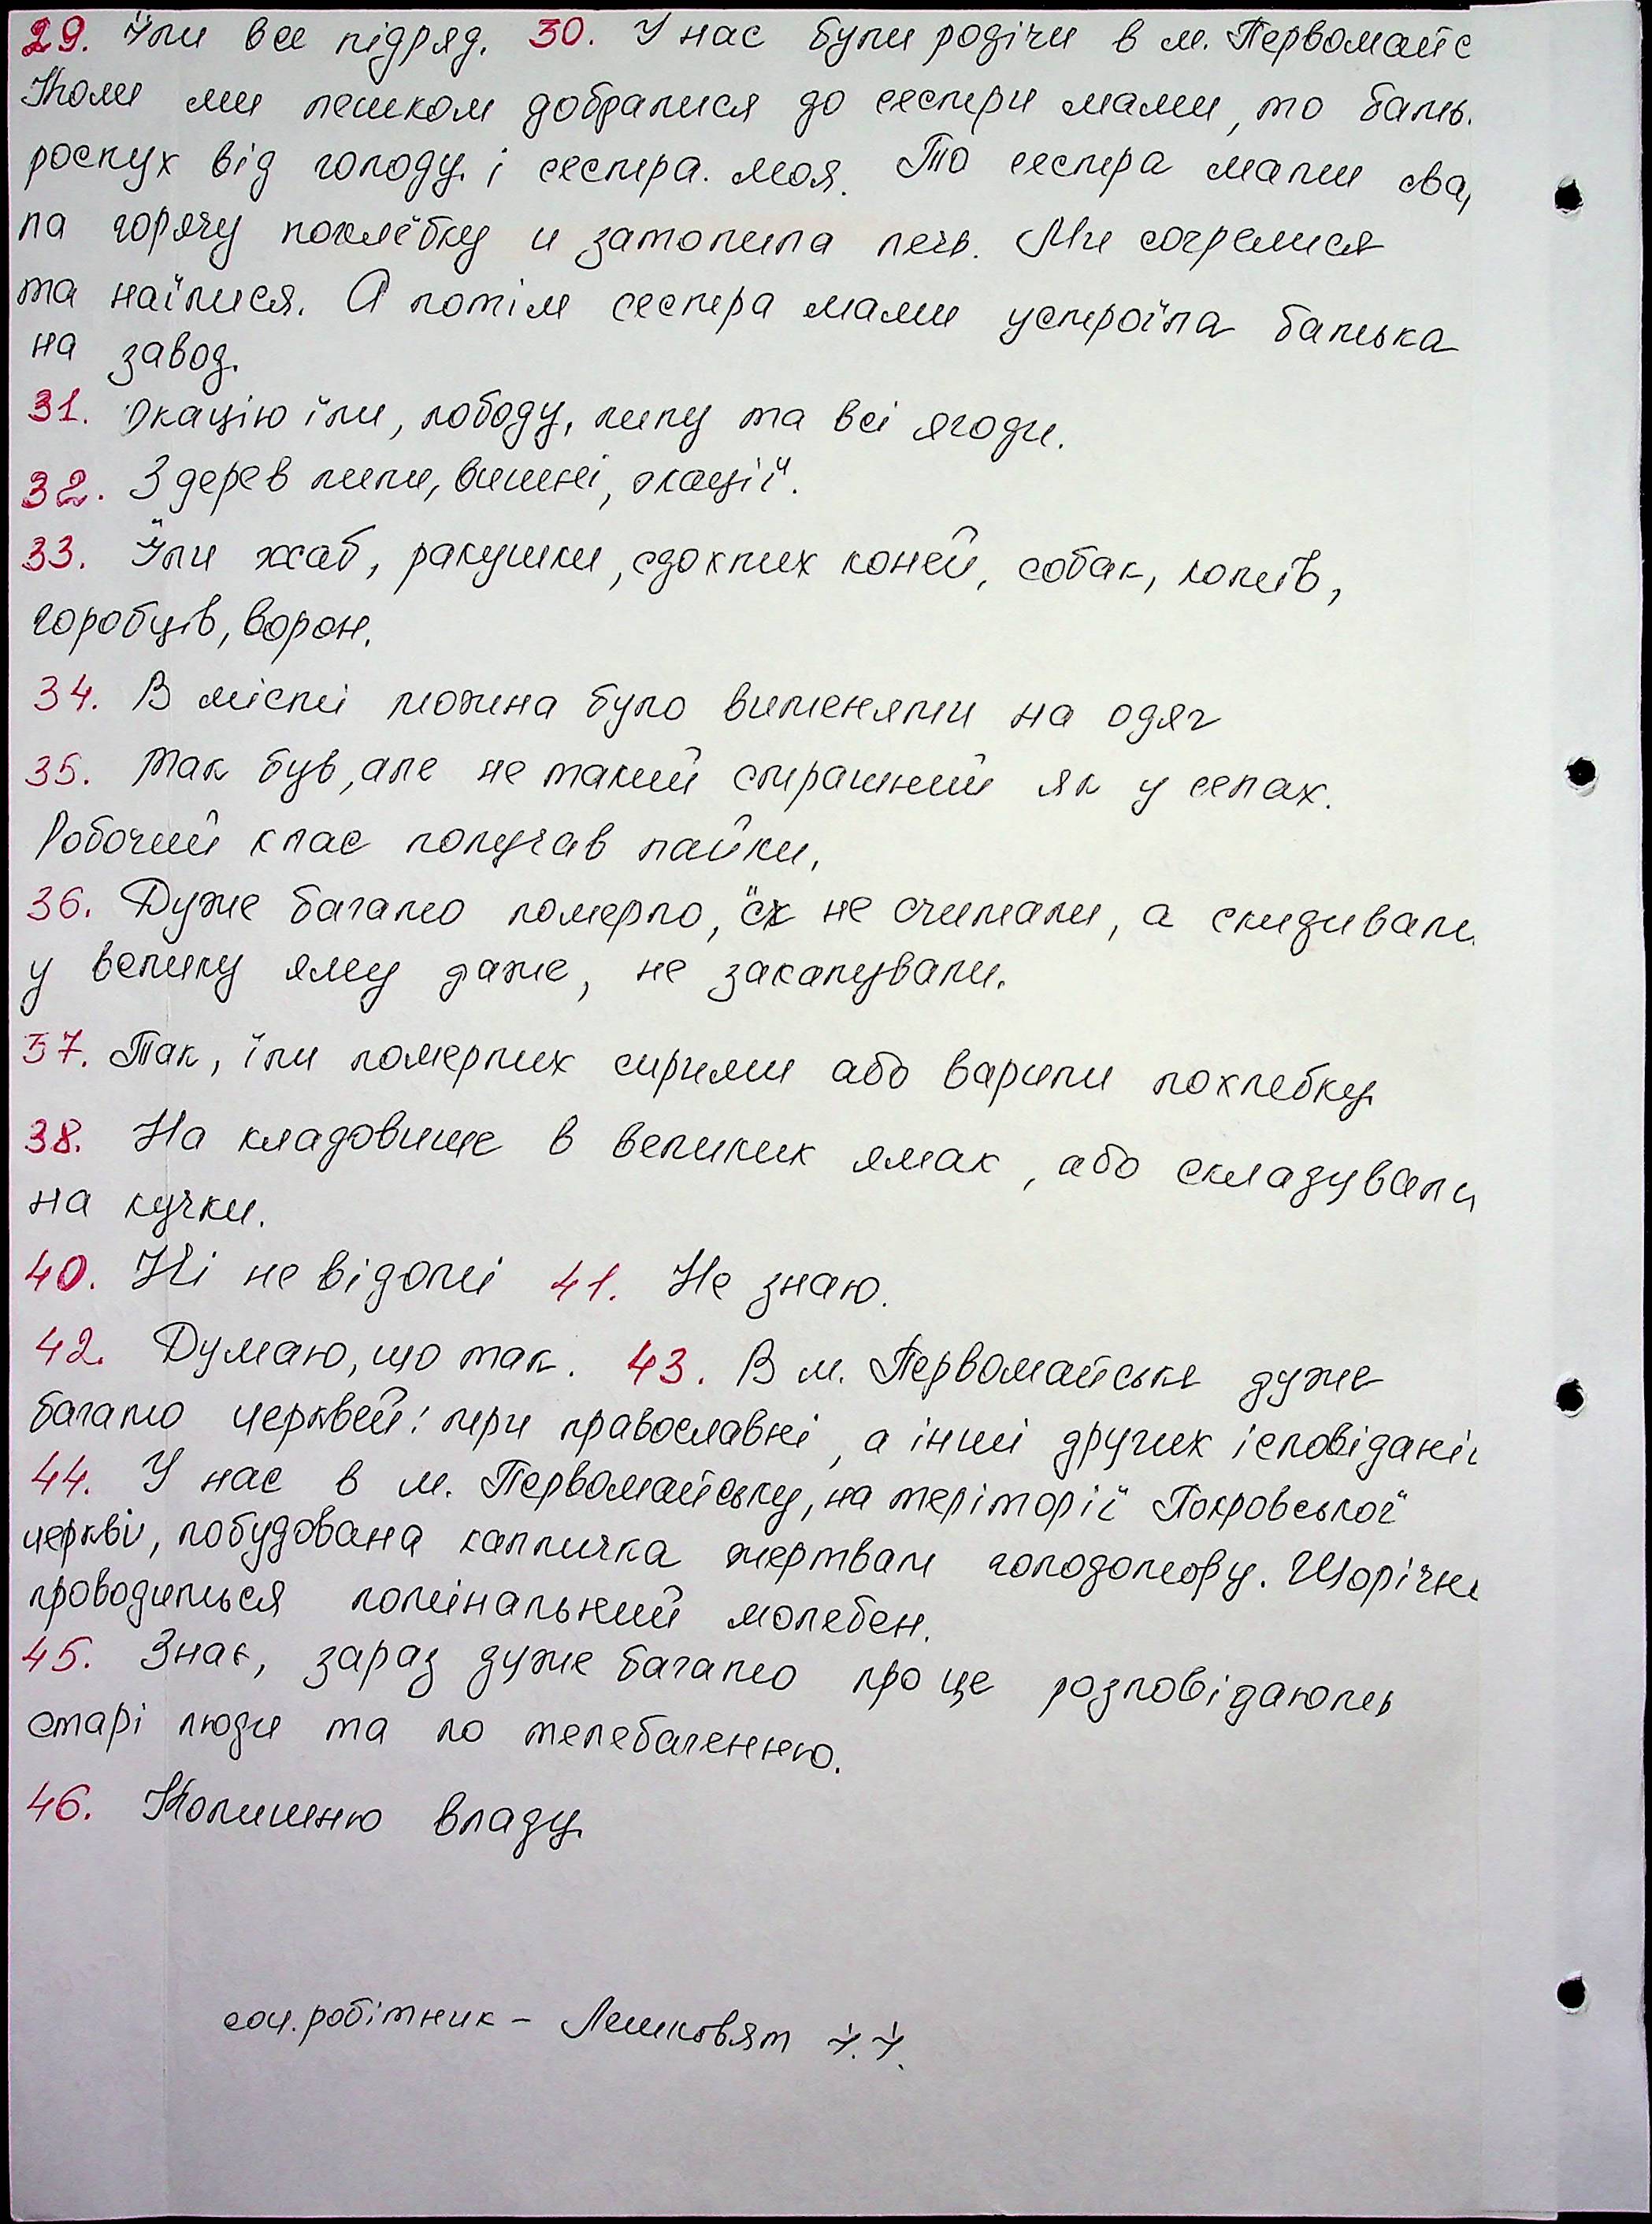 29. Їли все підряд. 30. У нас були родічи в м. Первомайс
Коли ми пешком добралися до сестри мами, то бать.
роспух від голоду і сестра моя. То сестра мами сва,
ла горячу похлёбку и затопила печь. Ми согрелися
та наїлися. А потім сестра мами устроїла батька
на завод.
31. Окацію їли, лободу, липу та всі ягоди.
32. З дерев липи, вишні, окації.
33. Їли жаб, ракушки, сдохлих коней, собак, котів,
горобців, ворон.
34. В місті можна було вименяти на одяг
35. Так був, але не такий страшний як у селах.
Робочий клас получав пайки,
36. Дуже багато померло, їх не считали, а скидвали
у велику яму даже, не закапували.
37. Так, їли померлих сирими або варили похлебку.
38. На кладовище в великих ямах, або складували
на кучки.
40. Ні не відомі 41. Не знаю.
42. Думаю, що так. 43. В м. Первомайське дуже
багато церквей: три православні, а інші других ісповідані
44. У нас в м. Первомайську, на теріторії Покровської
церкві, побудована капличка жертвам голодомору. Щорічн
проводиться помінальний молебен.
45. Знає, зараз дуже багато про це розповідають
старі люди та по телебаченню.
46. Колишню владу.
соц. робітник - Лешковят І. І.